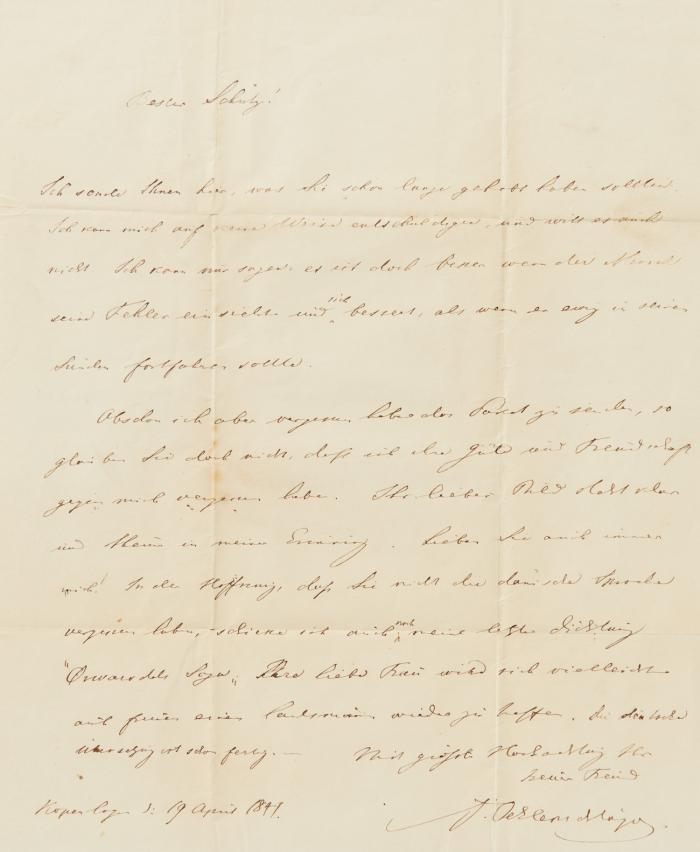 Bester Schütz!
Ich sende Ihnen hier, was Sie schon lange gehabt haben sollten.
Ich kann mich auf keine Weise entschuldigen, und will es auch
nicht. Ich kann nur sagen: es ist doch besser wenn der Mensch
seine Fehler einsieht und sich bessert, als wenn er ewig in seinen
Sünden fortfahren sollte.
Obschon ich aber vergessen habe das Packet zu senden, so
glauben Sie doch nicht, daß ich Ihre Güte und Freundschaft
gegen mich vergessen habe. Ihr lieber Bild steht klar
und theuer in meiner Erinnerung. Lieben Sie auch immer
mich! In der Hoffnung, daß Sie nicht die dänische Sprache
vergessen haben, schicke ich auch noch meine letzte Dichtung
"Ørvarodds Saga". Ihre liebe Frau wird sich vielleicht
auch freuen einen Landsmann wieder zu treffen. Die deutsche
Übersetzung ist schon fertig. — Mit größter Hochachtung Ihr
treuer Freund
Kopenhagen d: 19 April 1841. A. Oehlenschläger